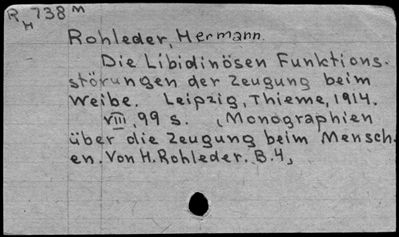 R 738 M
H
Rohleder, Hermann.
Die Libidinösen Funktions-
störungen der Zeugung beim
Weibe. Leipzig, Thieme, 1914.
VIII, 99 s. (Monographien
über die Zeugung beim Mensch-
en. Von H. Rohleder. B.4)